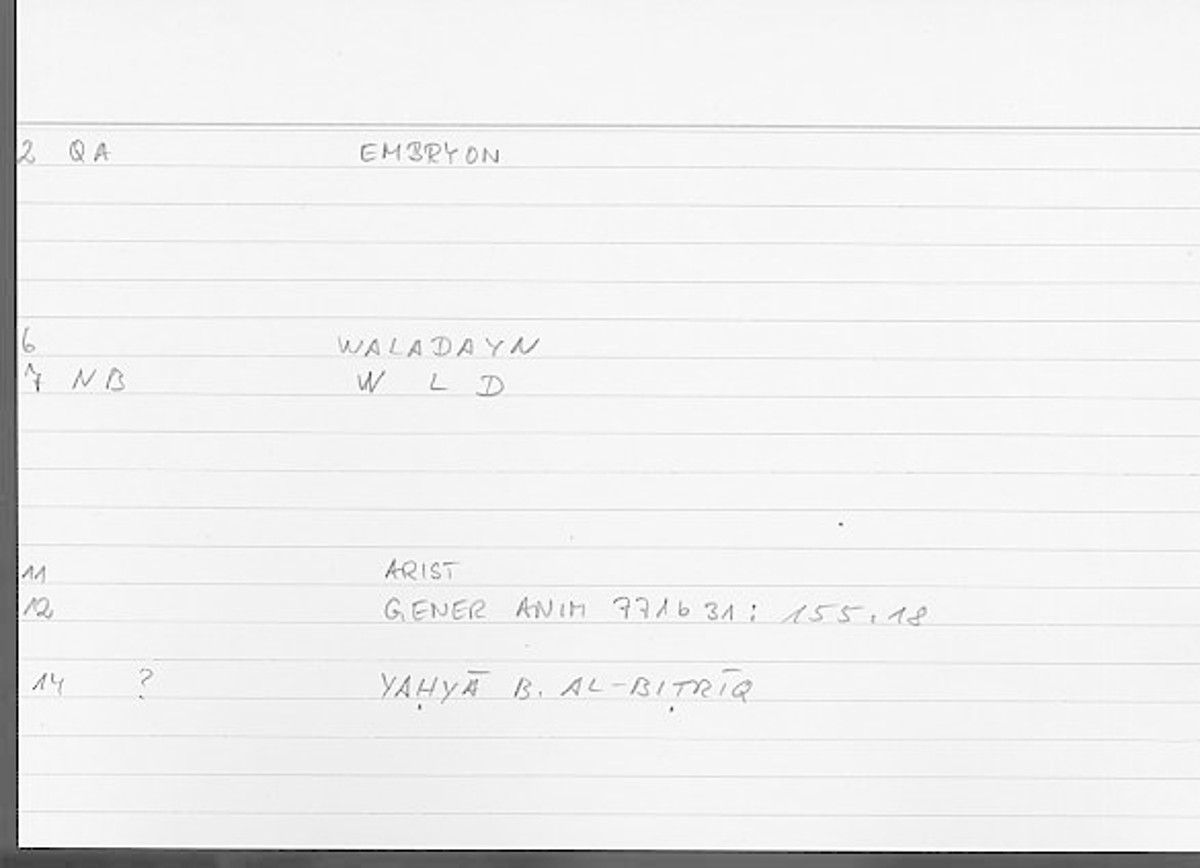 2 QA EMBRYON
6 WALADAYN
7 NB W L D
11 ARIST
12 GENER ANIM 771b31: 155.18
14 ? YAḤYĀ B. AL-BIṬRĪQ